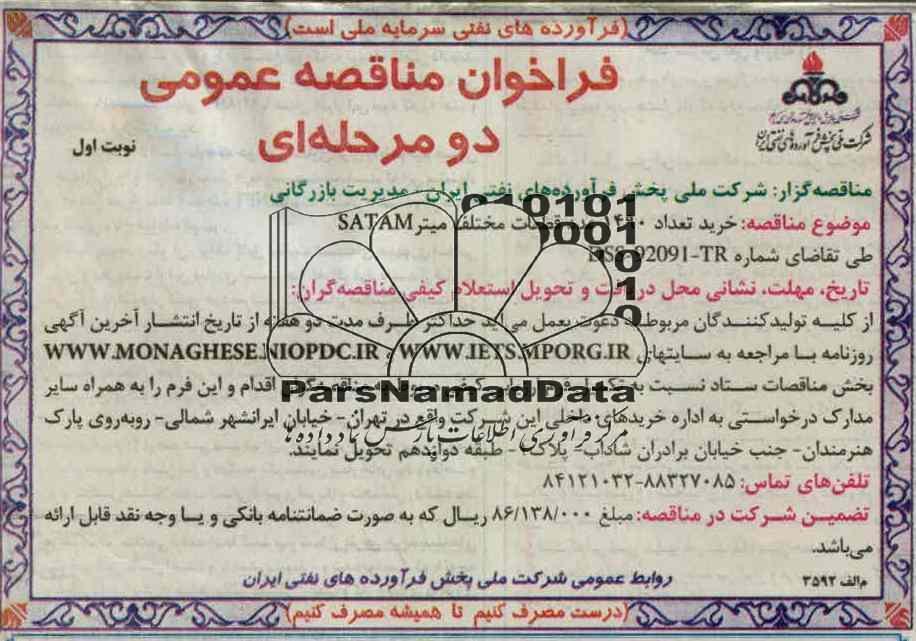 (فرآورده های نفتی سرمایه ملی است)
فراخوان مناقصه عمومی
دو مرحله‌ای
نوبت اول
شرکت ملی پخش فرآورده‌های نفتی ایران
مناقصه‌گزار: شرکت ملی پخش فرآورده‌های نفتی ایران - مدیریت بازرگانی
موضوع مناقصه: خرید تعداد قطعات مختلف میتر SATAM
طی تقاضای شماره DSS-92091-TR
تاریخ، مهلت، نشانی محل دریافت و تحویل استعلام کیفی مناقصه‌گران:
از کلیه تولیدکنندگان مربوطه دعوت بعمل می‌آید حداکثر ظرف مدت دو هفته از تاریخ انتشار آخرین آگهی
روزنامه با مراجعه به سایتهای WWW.IETS.MPORG.IR و WWW.MONAGHESE.NIOPDC.IR
بخش مناقصات ستاد نسبت به اقدام و این فرم را به همراه سایر
مدارک درخواستی به اداره خریدهای داخلی این شرکت واقع در تهران- خیابان ایرانشهر شمالی- روبه‌روی پارک
هنرمندان- جنب خیابان برادران شاداب- پلاک - طبقه دوازدهم تحویل نمایند.
تلفن‌های تماس: ۸۸۳۲۷۰۸۵-۸۴۱۲۱۰۳۲
تضمین شرکت در مناقصه: مبلغ ۸۶/۱۳۸/۰۰۰ ریال که به صورت ضمانتنامه بانکی و یا وجه نقد قابل ارائه
می‌باشد.
م‌الف ۳۵۹۲
روابط عمومی شرکت ملی پخش فرآورده های نفتی ایران
(درست مصرف کنیم تا همیشه مصرف کنیم)
ParsNamadData
مرکز فرآوری اطلاعات پارس نماد داده ها